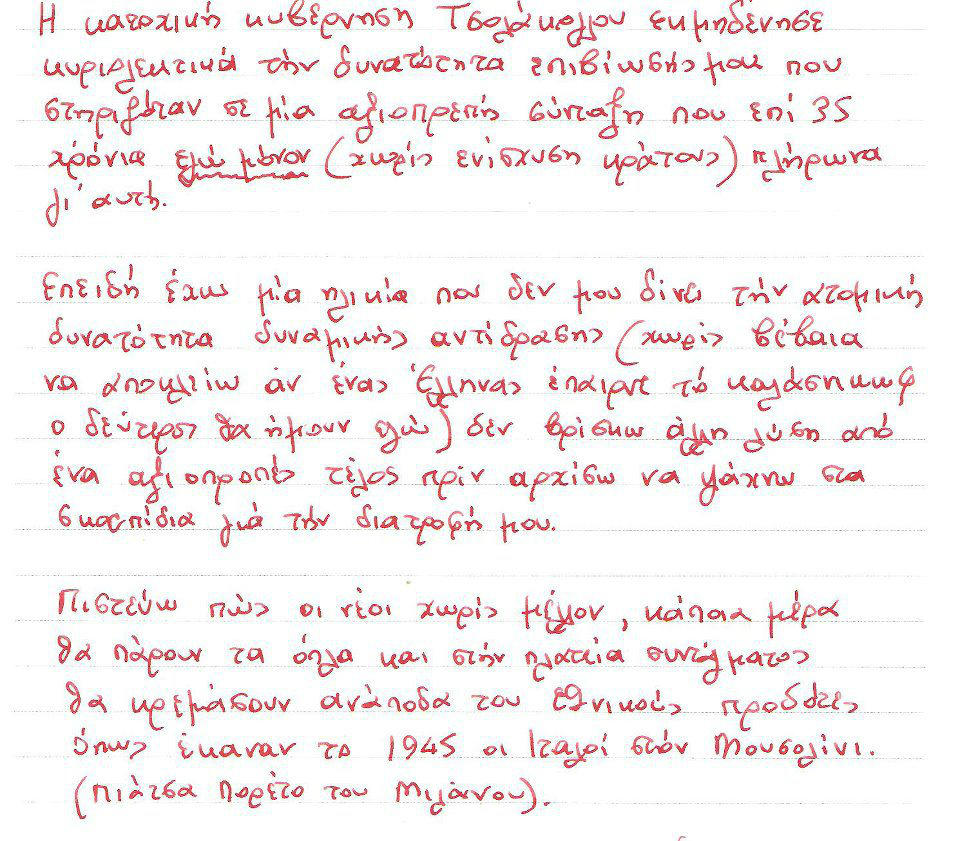 Η κατοχική κυβέρνηση Τσολάκογλου εκμηδένησε
κυριολεκτικά την δυνατότητα επιβίωσής μου που
στηριζόταν σε μία αξιοπρεπή σύνταξη που επί 35
χρόνια εγώ μόνον (χωρίς ενίσχυση κράτους) πλήρωνα
γι' αυτή.
Επειδή έχω μία ηλικία που δεν μου δίνει την ατομική
δυνατότητα δυναμικής αντίδρασης (χωρίς βέβαια
να αποκλείω αν ένας Έλληνας έπαιρνε το καλάσηκωφ
ο δεύτερος θα ήμουν εγώ) δεν βρίσκω άλλη λύση από
ένα αξιοπροπές τέλος πρίν αρχίσω να ψάχνω στα
σκουπίδια γιά την διατροφή μου.
Πιστεύω πώς οι νέοι χωρίς μέλλον, κάποια μέρα
θα πάρουν τα όπλα και στην πλατεία συντάγματος
θα κρεμάσουν ανάποδα του εθνικούς προδότες
όπως έκαναν το 1945 οι Ιταλοί στόν Μουσολίνι.
(Πιάτσα Πορέτο του Μιλάνου).